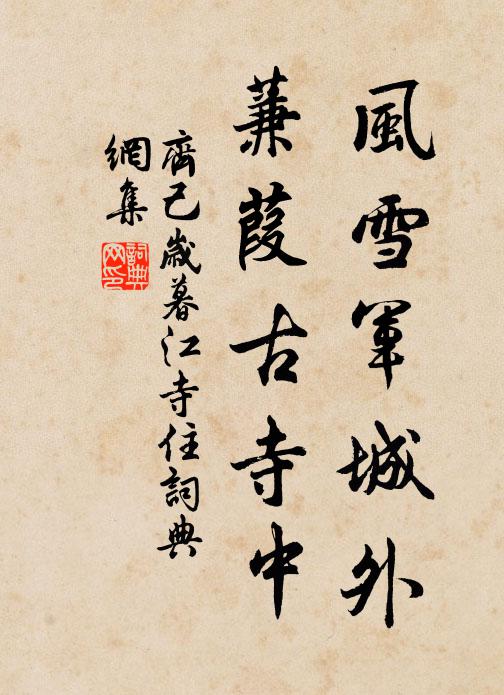 風雪軍城外
蒹葭古寺中
齊己歲暮江寺住詞典
網集
詞典網印